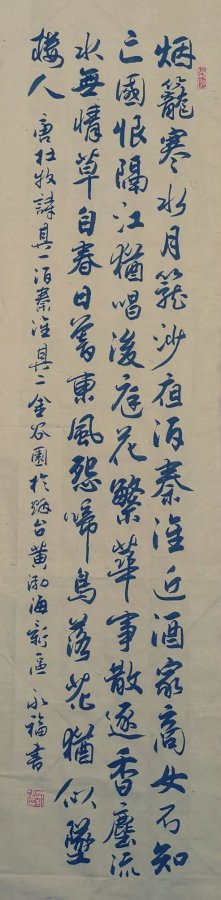 烟籠寒水月籠沙夜泊秦淮近酒家商女不知
亡國恨隔江猶唱後庭花繁華事散逐香塵流
水無情草自春日暮東風怨啼鳥落花猶似墜
楼人
唐杜牧詩其一泊秦淮其二金谷園於台黄渤海新區永福書